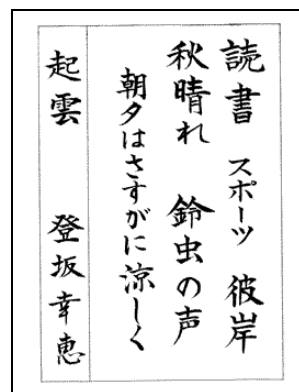 読書 スポーツ 彼岸
秋晴れ 鈴虫の声
朝夕はさすがに涼しく
起雲 登坂幸恵